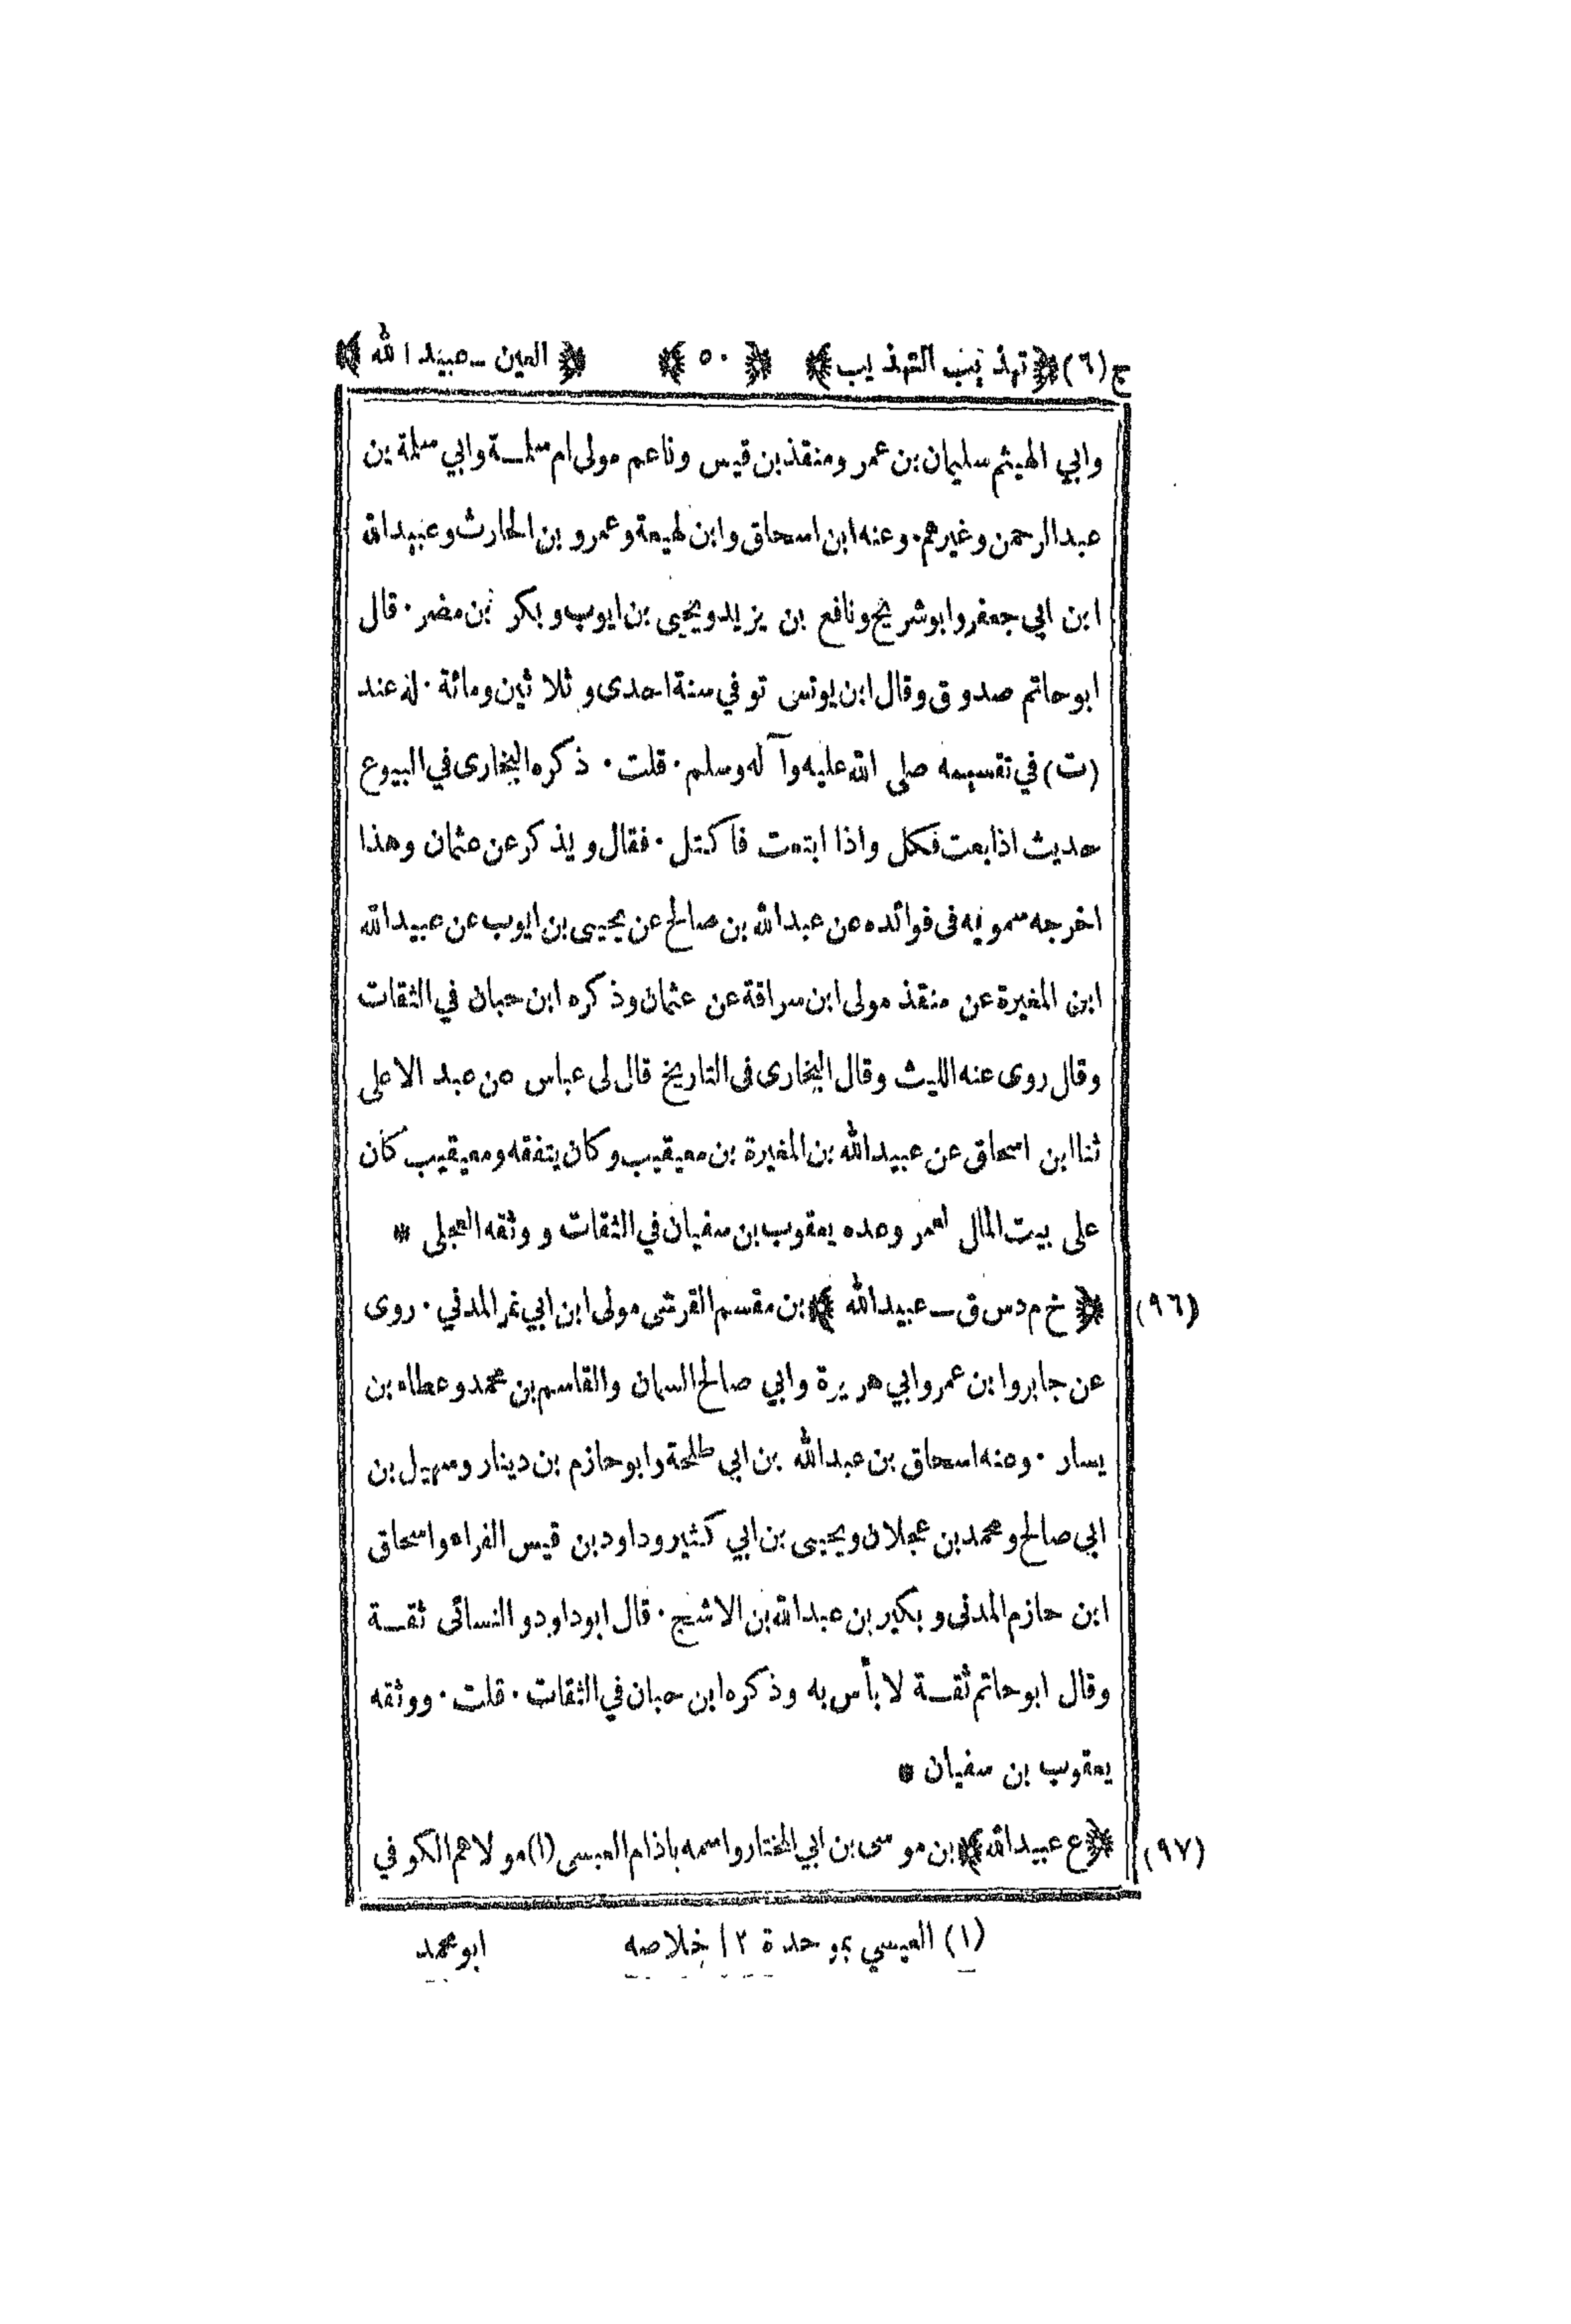 ج (٦) ﴿تهذيب التهذيب﴾ ﴿٥٠﴾ ﴿العين ـ عبيد الله﴾
وابي الهيثم سليمان بن عمر ومنقذ بن قيس وناعم مولى ام سلمة وابي سلمة بن
عبد الرحمن وغيرهم . وعنه ابن اسحاق وابن لهيعة وعمرو بن الحارث وعبيد الله
ابن ابي جعفر وابو شريح ونافع بن يزيد ويحيى بن ايوب وبكر بن مضر . قال
ابو حاتم صدوق وقال ابن يونس توفي سنة احدى وثلاثين ومائة . له عند
(ت) في تقسيمه صلى الله عليه وآله وسلم . قلت . ذكره البخارى في البيوع
حديث اذا بعت فكل واذا ابتعت فاكتل . فقال ويذكر عن عثمان وهذا
اخرجه سمويه فى فوائده عن عبد الله بن صالح عن يحيى بن ايوب عن عبيد الله
ابن المغيرة عن منقذ مولى ابن سراقة عن عثمان وذكره ابن حبان في الثقات
وقال روى عنه الليث وقال البخارى فى التاريخ قال لى عباس عن عبد الاعلى
ثنا ابن اسحاق عن عبيد الله بن المغيرة بن معيقيب وكان يتفقه ومعيقيب كان
على بيت المال لعمر وعده يعقوب بن سفيان في الثقات ووثقه العجلى *
(٩٦) ﴿خ م د س ق ـ عبيد الله﴾ بن مقسم القرشى مولى ابن ابي نمر المدني . روى
عن جابر وابن عمر وابي هريرة وابي صالح السمان والقاسم بن محمد وعطاء بن
يسار . وعنه اسحاق بن عبد الله بن ابي طلحة وابو حازم بن دينار وسهيل بن
ابي صالح ومحمد بن عجلان ويحيى بن ابي كثير وداود بن قيس الفراء واسحاق
ابن حازم المدنى وبكير بن عبد الله بن الاشج . قال ابو داود والنسائى ثقة
وقال ابو حاتم ثقة لا بأس به وذكره ابن حبان في الثقات . قلت . ووثقه
يعقوب بن سفيان *
(٩٧) ﴿ع عبيد الله﴾ بن موسى بن ابي المختار واسمه باذام العبسى (١) مولاهم الكوفي
(١) العبسي بموحدة ١٢ خلاصه
ابو محمد